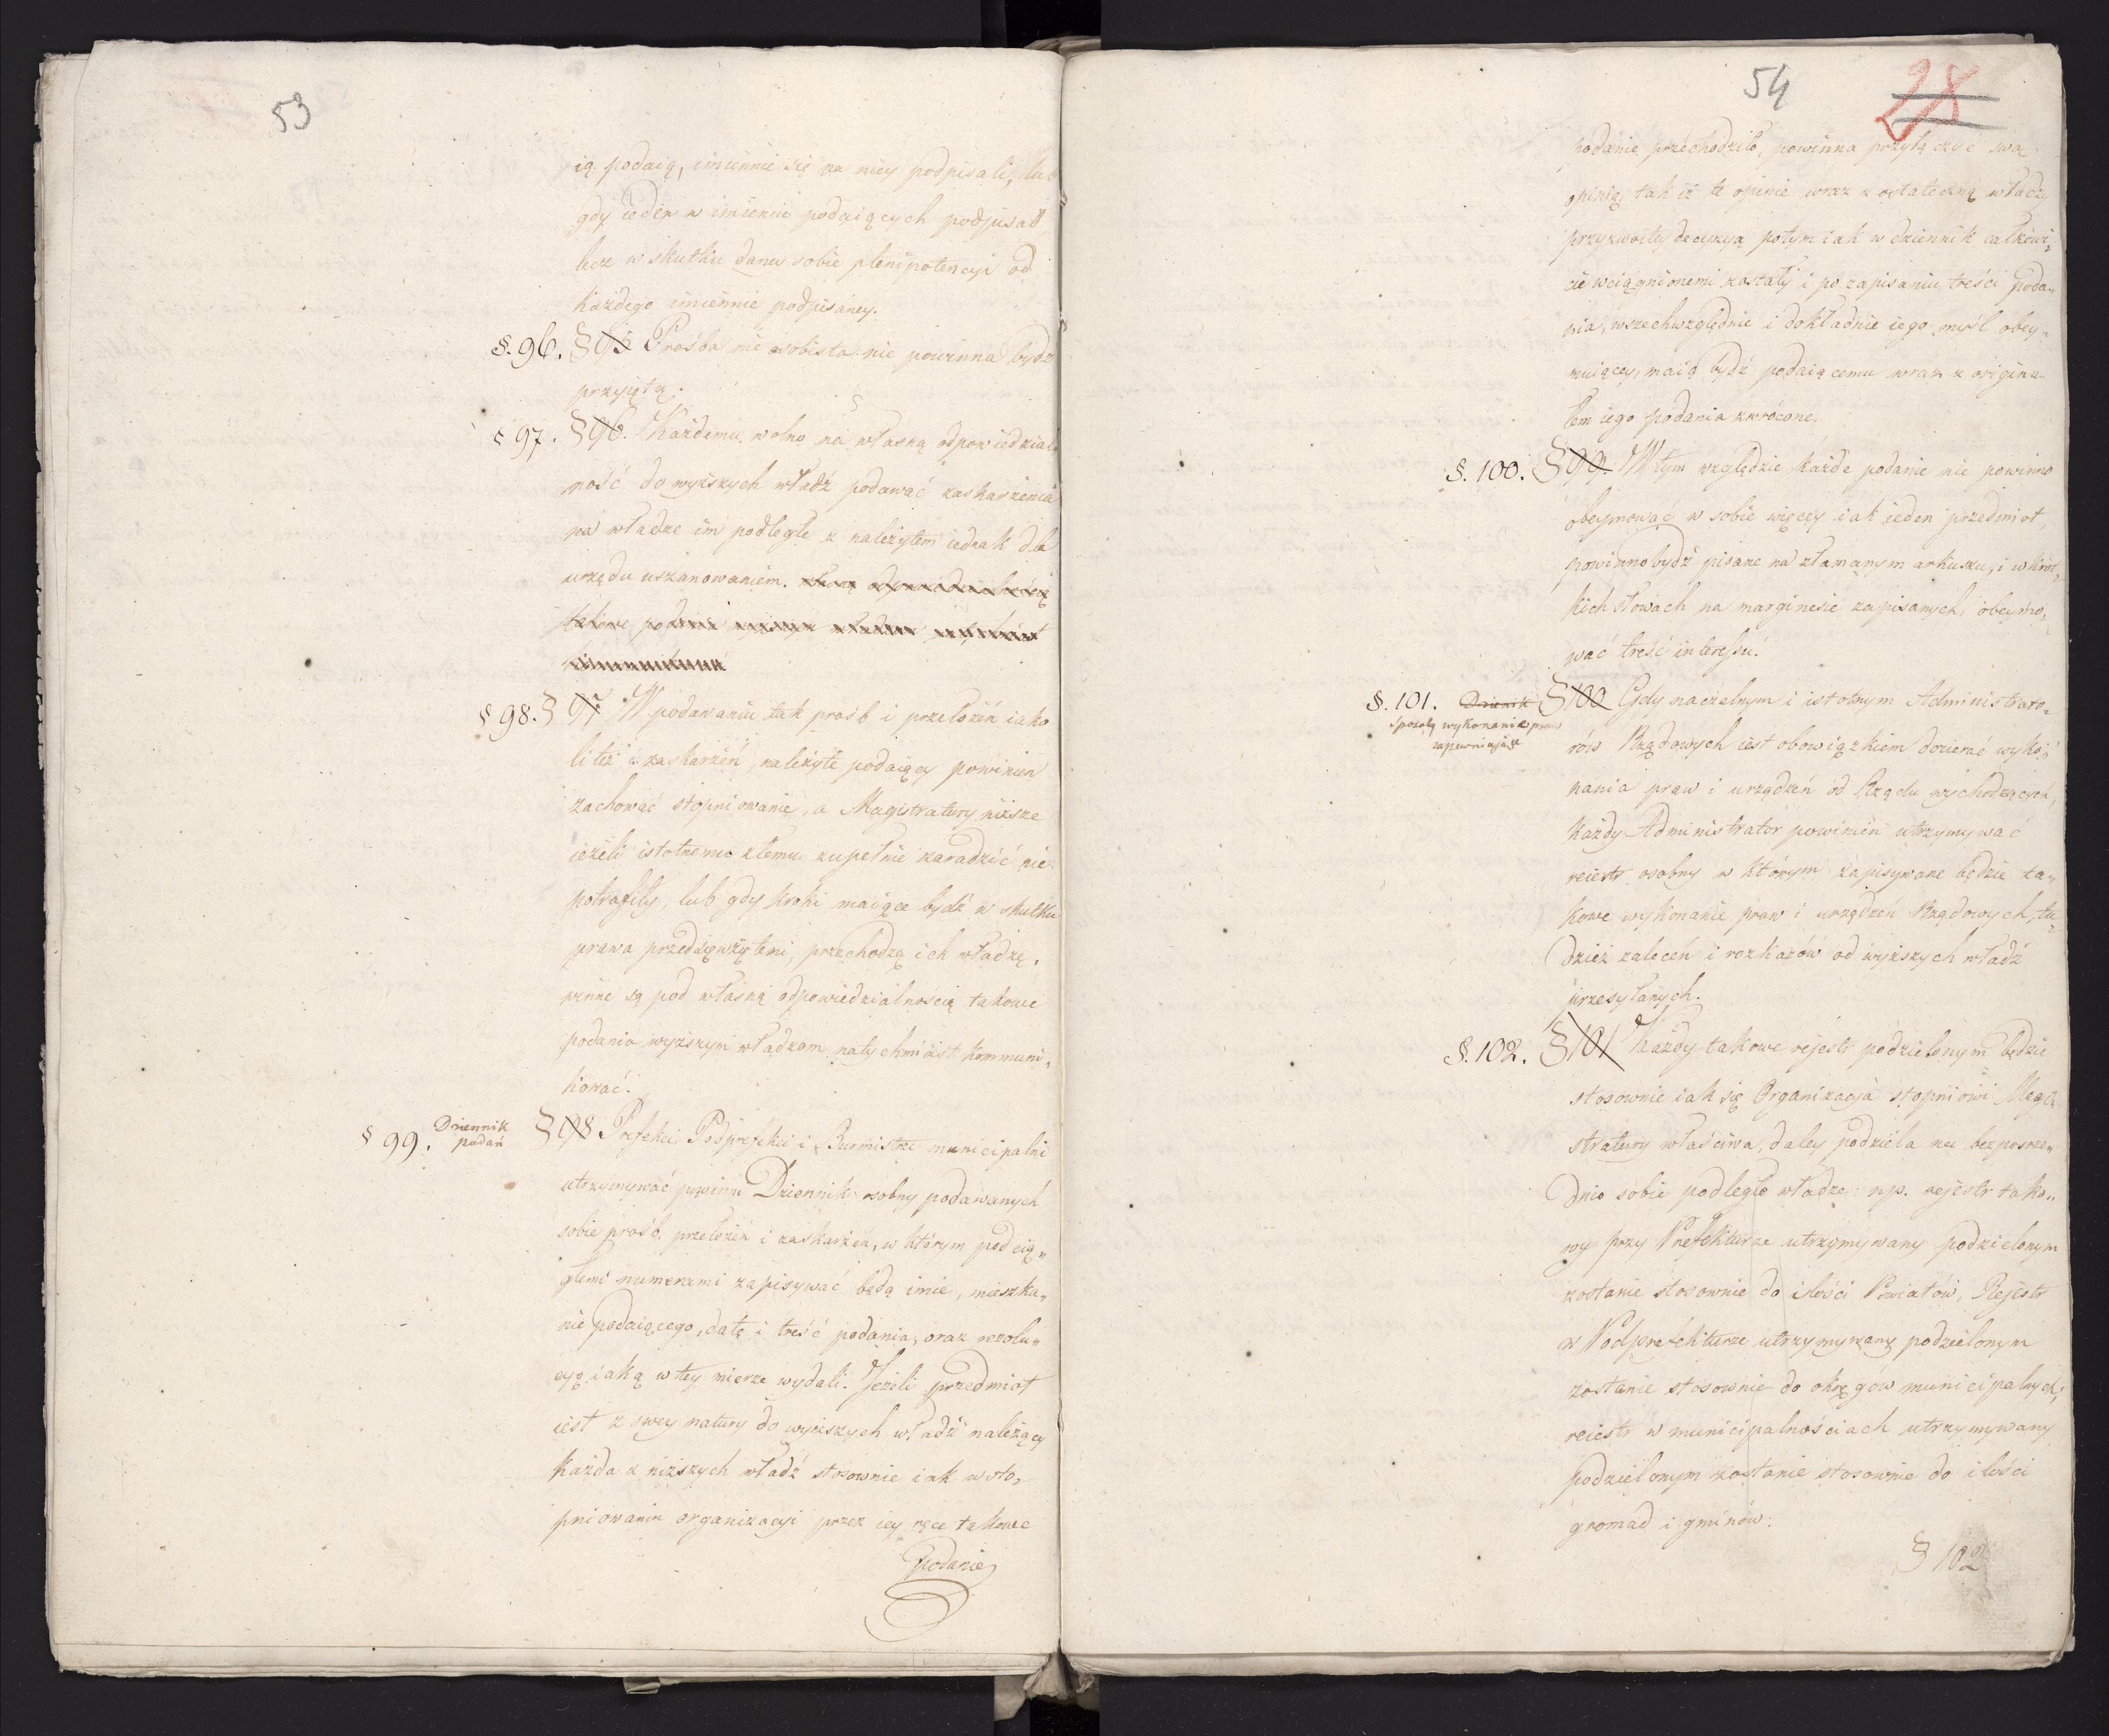 53
ią podaią, imiennie się na niey podpisali, lub
gdy ieden w imieniu podaiących podpisał
lecz w skutku daney sobie plenipotencyi od
każdego imiennie podpisaney.
§. 96. § 95 Prośba nie osobista nie powinna bydz
przyiętą.
§ 97. § 96. Każdemu wolno na własną odpowiedzial„
ność do wyższych władź podawać zaskarzenia
na władze im podległe z należytem iednak dla
urzędu uszanowaniem.
takowe
§ 98. § 97 W podawaniu tak prośb i przełożeń iako
li też i zaskarżeń, należyte podaiący powinien
zachować stopniowanie, a Magistratury niższe
ieżeli istotnemu złemu zupełnie zaradzić nie
potrafiły, lub gdy kroki maiące bydź w skutku
prawa przedsięwziętemi, przechodzą ich władzę,
winne są pod własną odpowiedzialnością takowe
podania wyższym władzom natychmiast kommuni„
kować.
§ 99. Dziennik
podań
§ 98 Prefekci Podprefekci i Burmistrze municipalni
utrzymywać powinni Dziennik osobny podawanych
sobie prośb, przełożeń i zaskarżeń, w którym pod cią„
głemi numerami zapisywać będą imie, mieszka„
nie podaiącego, datę i treść podania, oraz rezolu„
cyą iaką w tey mierze wydali. Jeżeli przedmiot
iest z swey natury do wyższych władź należący
każda z niższych władź stosownie iak w sto„
pniowaniu organizacyi przez iey ręce takowe
podanie
54
28
podanie przechodziło, powinna przyłączyć swą
opinię, tak iż te opinie wraz z ostateczną władzy
przyzwoitey decyzyą potym iak w dziennik całkowi„
cie wciągnionemi zostały i po zapisaniu treści poda„
nia, wszechwzględnie i dokładnie iego myśl obey„
muiącey, maią bydź podaiącemu wraz z origina„
łem iego podania zwrócone.
§. 100. § 99. W tym względzie każde podanie nie powinno
obeymować w sobie więcey iak ieden przedmiot,
powinno bydź pisane na złamanym arkuszu, i w krót„
kich słowach na marginesie zapisanych, obeymo„
wać treść interessu.
§. 101. Dziennik
Sposoby wykonanie praw
zapewniające
§ 100 Gdy naczelnym i istotnym Administrato„
rów Rządowych iest obowiązkiem dozierać wyko„
nania praw i urządzeń od Rządu wychodzących,
każdy Administrator powinien utrzymywać
reiestr osobny w którym zapisywane będzie ta„
kowe wykonanie praw i urządzeń Rządowych, tu„
dzież zaleceń i rozkazów od wyższych władź
przesyłanych.
§. 102. § 101 Każdy takowe rejestr podzielonym będzie
stosownie iak się Organizacya stopniowi Magi„
stratury właściwa, daley podziela na bezposrze„
dnio sobie podległe władze: np. rejestr tako„
wy przy Prefekturze utrzymywany podzielonym
zostanie stosownie do ilości Powiatów, Rejestr
w Podprefekturze utrzymywany podzielonym
zostanie stosownie do okręgów municipalnych;
reiestr w municipalnościach utrzymywany
podzielonym zostanie stosownie do ilości
gromad i gminów.
§ 102